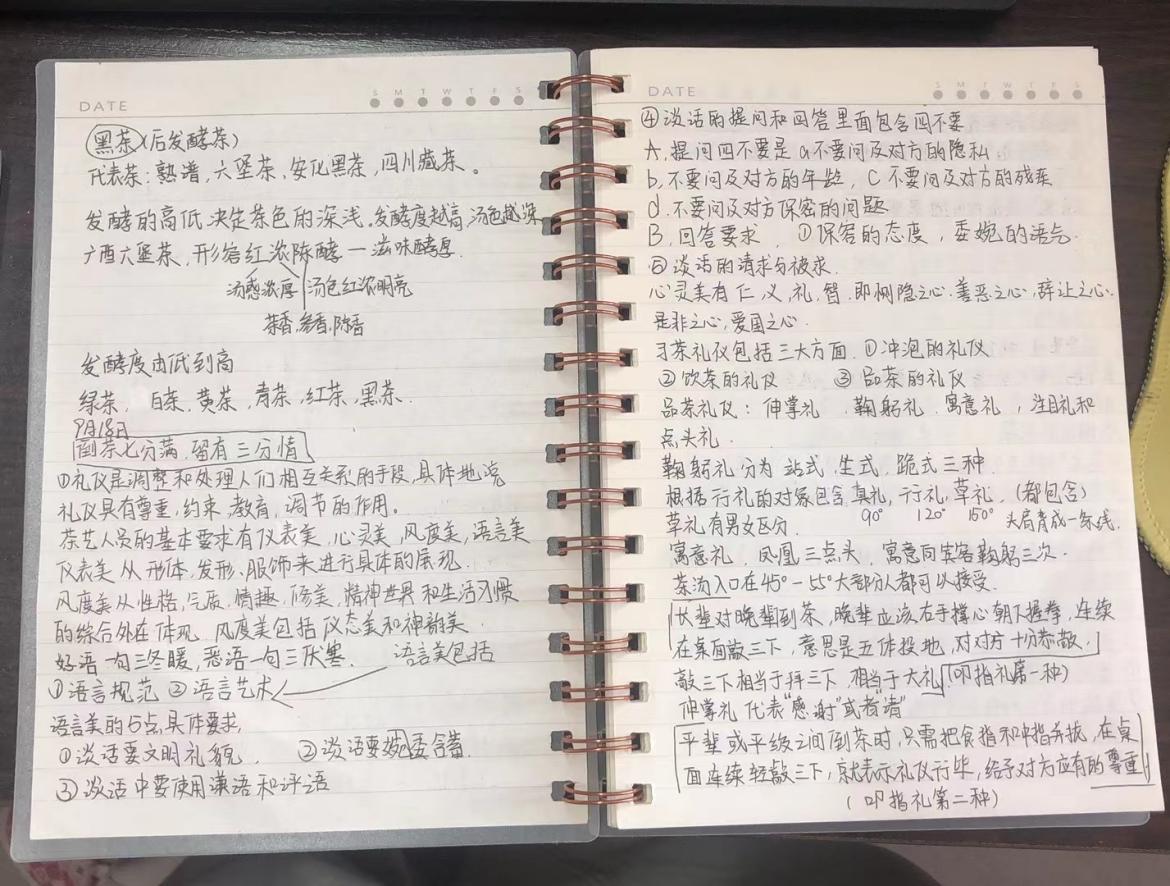 DATE
S M T W T F S
黑茶(后发酵茶)
代表茶:熟谱,六堡茶,安化黑茶,四川藏茶。
发酵的高低决定茶色的深浅。发酵度越高,汤色越深
广西六堡茶,形容红浓陈酵—滋味酵厚.
汤感浓厚 汤色红浓明亮
茶香,参香,陈香
发酵度由低到高
绿茶, 白茶,黄茶,青茶,红茶,黑茶.
9月18日
倒茶七分满,留有三分情
①礼仪是调整和处理人们相互关系的手段,具体地说
礼仪具有尊重,约束,教育,调节的作用。
茶艺人员的基本要求有仪表美,心灵美,风度美,语言美
仪表美从形体,发形,服饰来进行具体的展现.
风度美从性格,气质,情趣,修美,精神世界和生活习惯
的综合外在体现,风度美包括仪态美和神韵美.
好语一句三冬暖,恶语一句三伏寒. 语言美包括
①语言规范 ②语言艺术
语言美的5点具体要求,
①谈话要文明礼貌. ②谈话要婉委含蓄.
③谈话中要使用谦语和评语
DATE
S M T W T F S
④谈话的提问和回答里面包含四不要
A,提问四不要是a不要问及对方的隐私
b,不要问及对方的年龄, C不要问及对方的残疾
d.不要问及对方保密的问题
B,回答要求, ①保密的态度,委婉的语气.
⑤谈话的请求与被求.
心灵美有仁,义,礼,智.即恻隐之心.善恶之心,辞让之心.
是非之心,爱国之心.
习茶礼仪包括三大方面.①冲泡的礼仪
②饮茶的礼仪 ③品茶的礼仪
品茶礼仪:伸掌礼,鞠躬礼.寓意礼,注目礼和
点头礼.
鞠躬礼分为站式,坐式,跪式三种
根据行礼的对象包含真礼,行礼,草礼.(都包含)
草礼有男女区分. 90° 120° 150° 头肩背成一条线.
寓意礼,凤凰三点头,寓意向宾客鞠躬三次.
茶汤入口在45°-55°大部分人都可以接受.
长辈对晚辈到茶,晚辈应该右手撑心朝下握拳,连续
在桌面敲三下,意思是五体投地,对对方十分恭敬.
敲三下相当于拜三下,相当于大礼(叩指礼第一种)
伸掌礼代表“感谢”或者“请”
平辈或平级之间倒茶时,只需把食指和中指并拢,在桌
面连续轻敲三下,就表示礼仪行毕,给予对方应有的尊重
(叩指礼第二种)